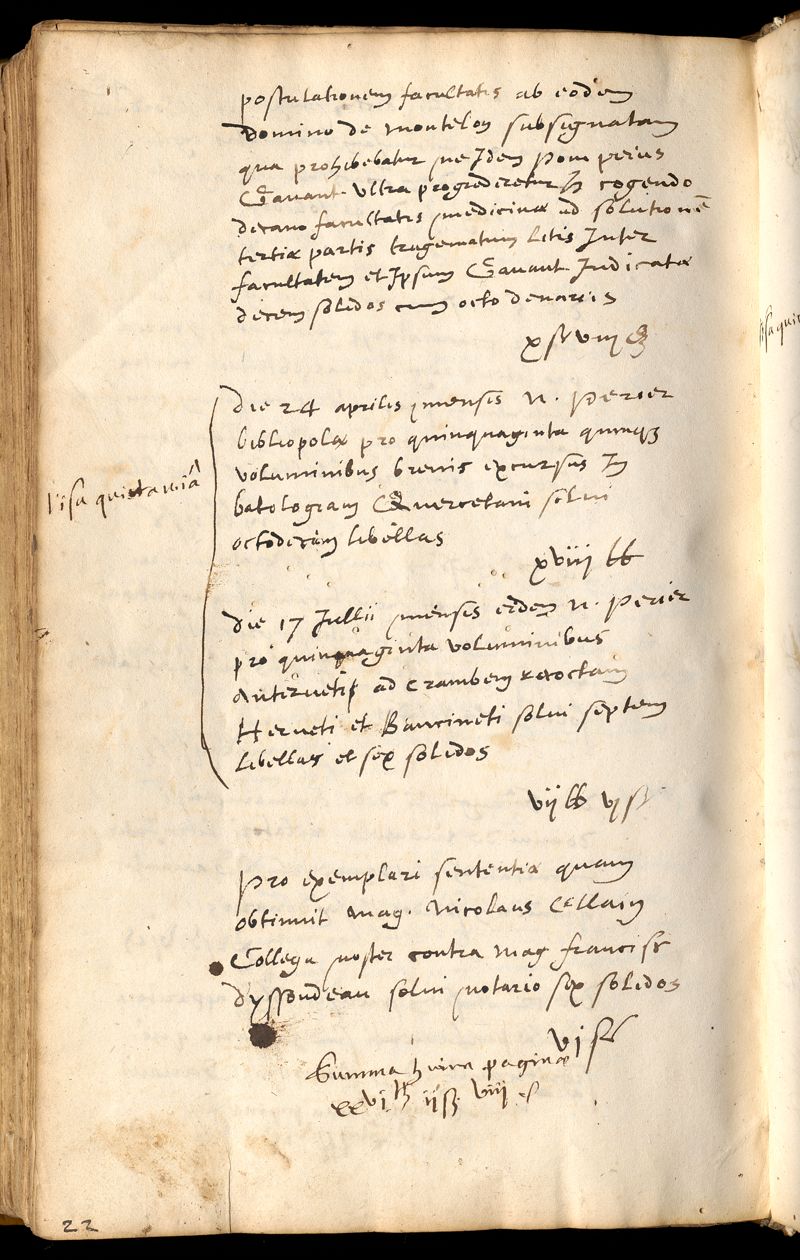 postulationem facultatis ab eodem
Domino de montelon subsignatam
qua prohibebatur ne Idem pompeius
Gavant. Ultra progrederetur In cogendo
decano facultatis medicinæ ad solutionē
tertiæ partis tragematum litis Inter
facultatem et Ipsum Gavant Iudicatæ
decem solidos cum octo denariis
x s viii d
Die 24 aprilis mensis N. Perier
bibliopolæ pro quinquaginta quinq;
voluminibus brevis excursus In
visa quictantia
batologiam Quercetani solvi
octodecim libellas
xviii lb
Die 17 Iullii mensis eidem N. Perier
pro quinquaginta voluminibus
ad crambem recoctam
Herveti et Baucineti solvi septem
libellas et sex solidos
vii lb vi s
Pro exemplari sententiæ quam
obtinuit mag. Nicolaus Cellain
Collega noster contra mag francisc
dyssoudeau solvi notario sex solidos
vi s
Summa huius paginæ
xxvi lb ii s viii d
22